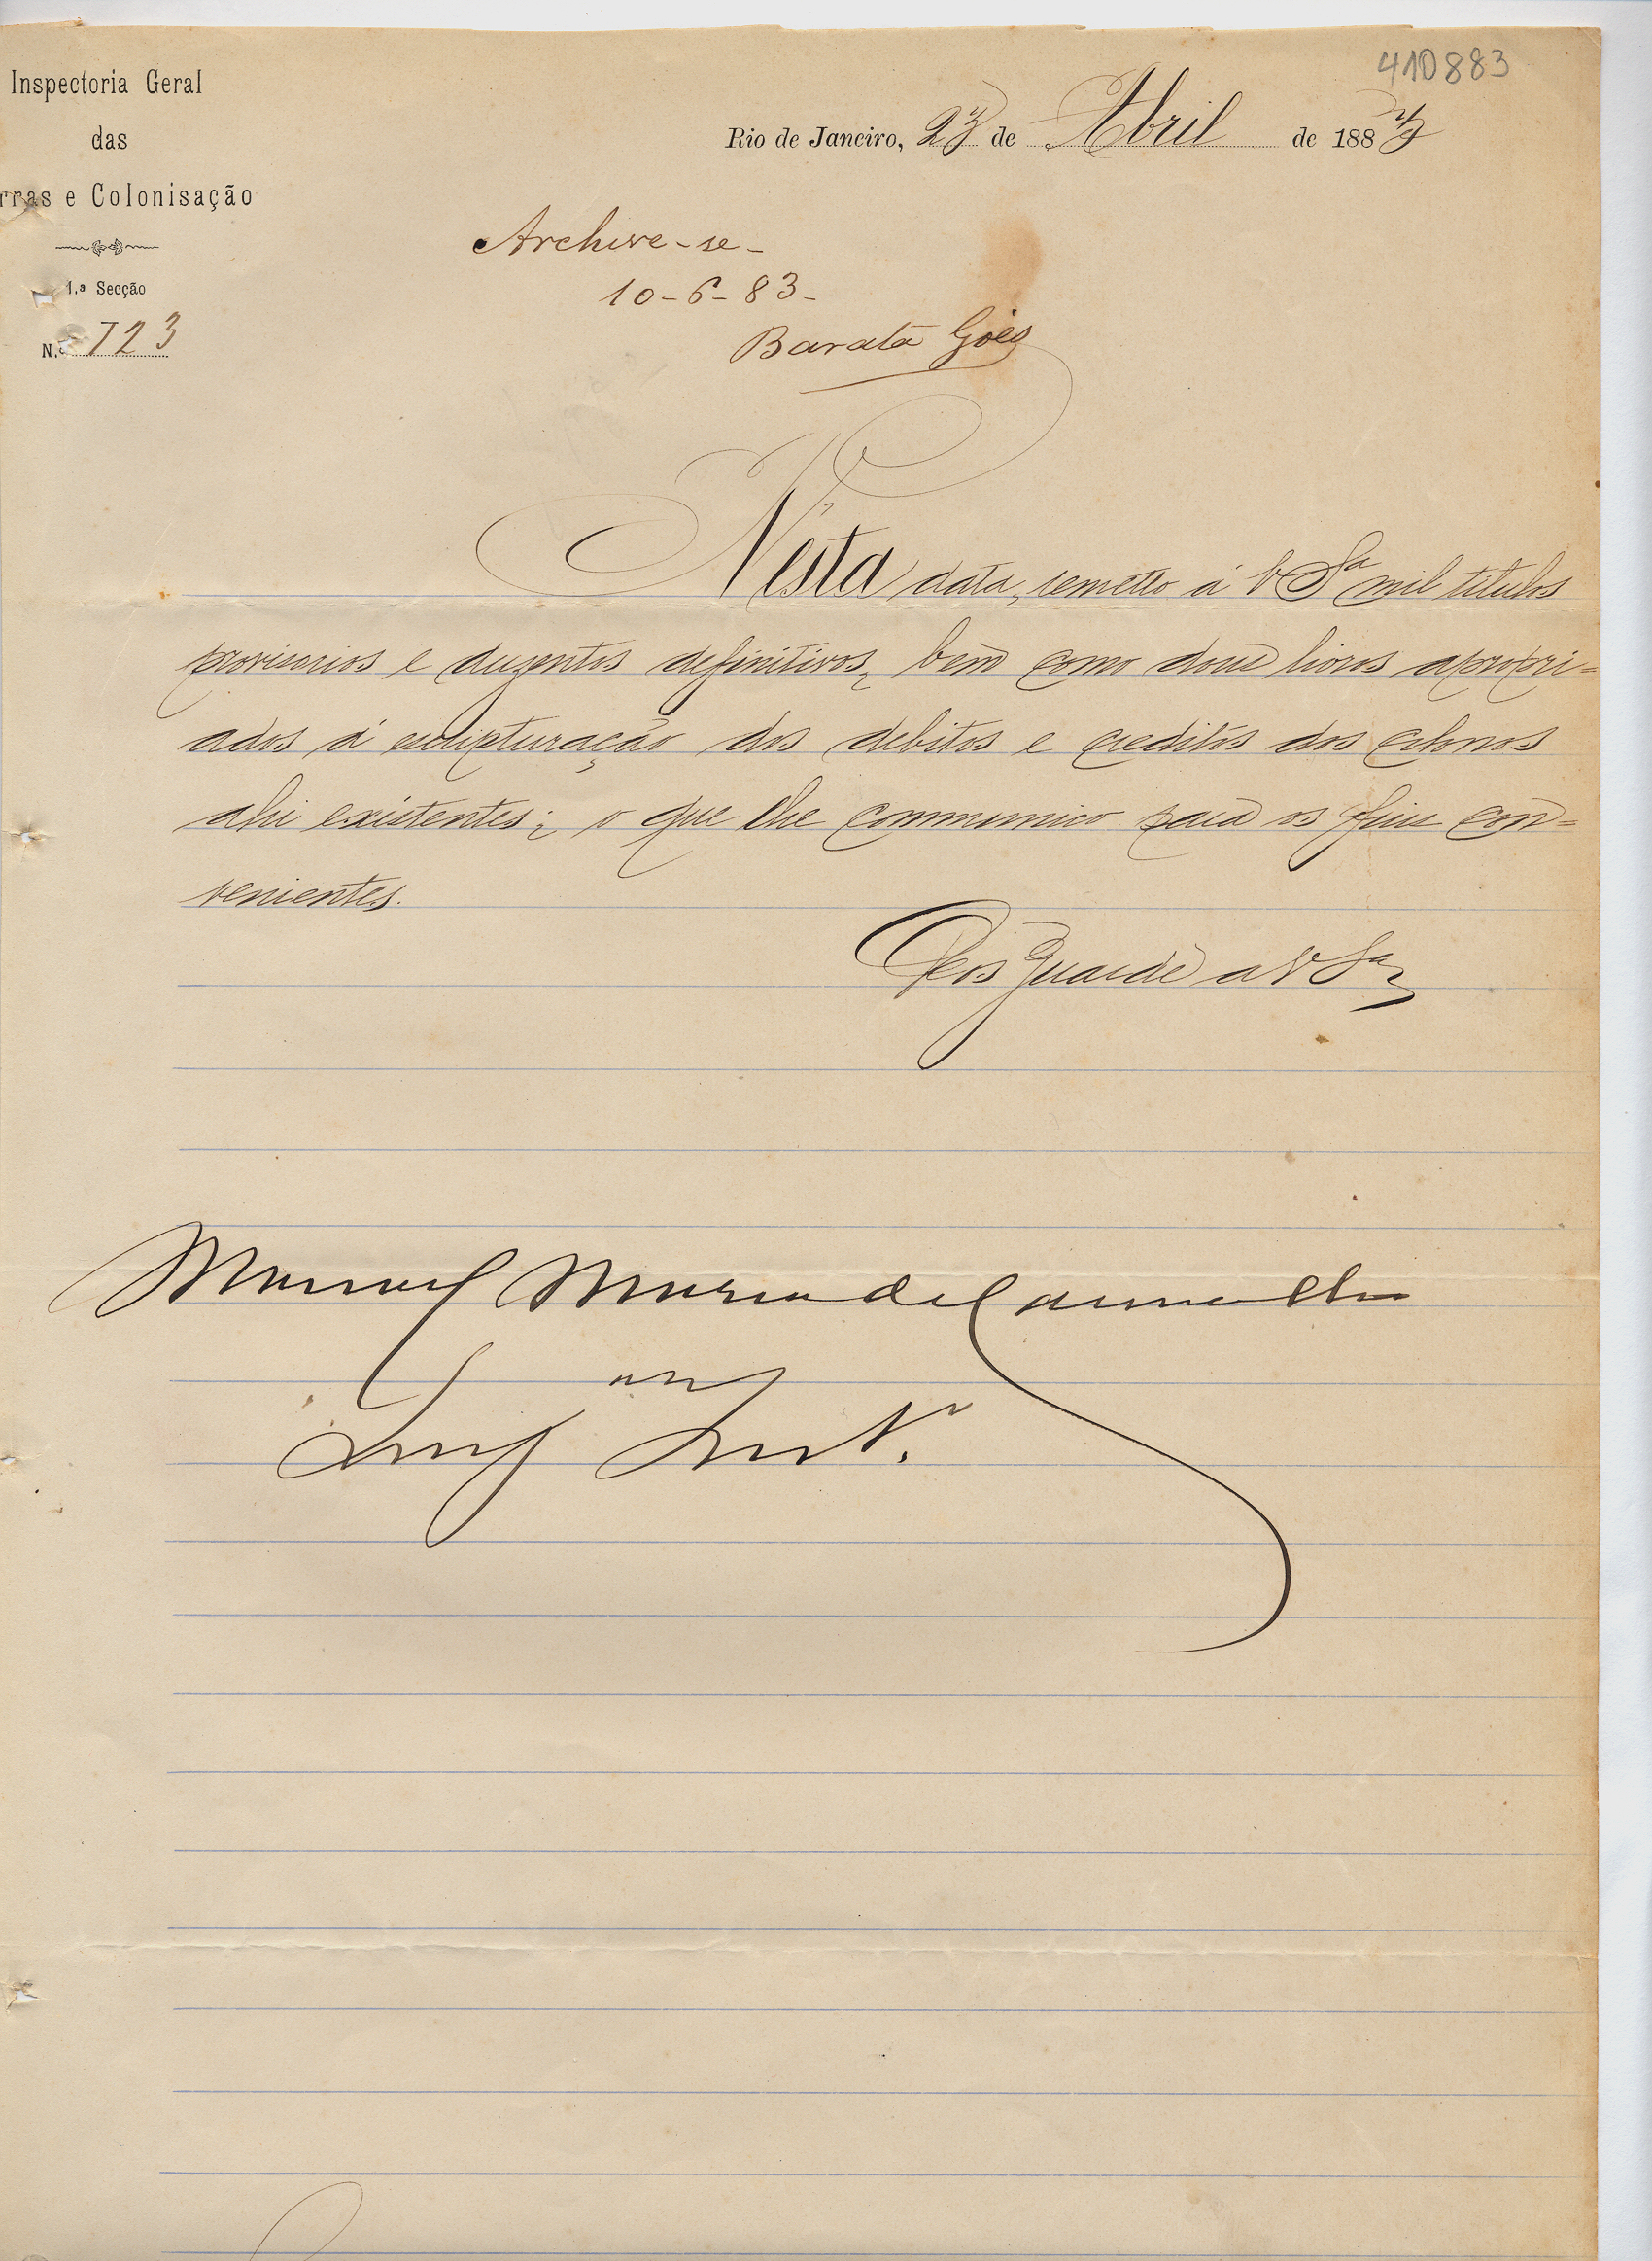 410883
Inspectoria Geral
das
rras e Colonisação
1.ª Secção
N.º 723
Rio de Janeiro, 23 de Abril de 1883
Archive-se-
10-6-83-
Barata Góes
N'esta data, remetto á V Sª mil titulos
provisorios e duzentos definitivos, bem como dous livros apropri=
ados á escripturação dos debitos e creditos dos colonos
ahi existentes; o que lhe communico para os fins con=
venientes.
Deos Guarde a V Sª
Manuel Maria de Carvalho